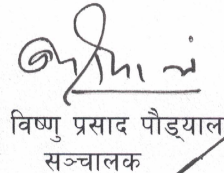 विष्णु प्रसाद पौड्याल
सञ्चालक